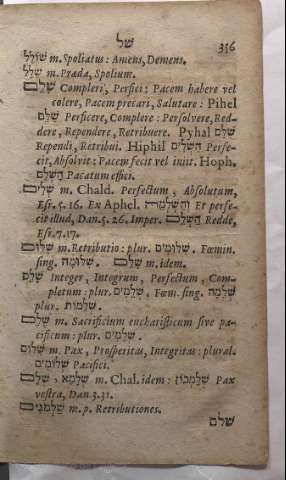 של 356
שׁוֹלָל m. Spoliatus: Amens, Demens.
שָׁלָל m. Præda, Spolium.
שָׁלַם Compleri, Perfici: Pacem habere vel
colere, Pacem precari, Salutare: Pihel
שִׁלֵּם Perficere, Complere: Persolvere, Red-
dere, Rependere, Retribuere. Pyhal שֻׁלַּם
Rependi, Retribui. Hiphil הִשְׁלִים Perfe-
cit, Absolvit: Pacem fecit vel iniit. Hoph.
הָשְׁלַם Pacatum effici.
שְׁלִים m. Chald. Perfectum, Absolutum,
Esr. 5. 16. Ex Aphel. Et perfe-
cit illud, Dan. 5. 26. Imper. הַשְׁלֵם Redde,
Esr. 7. 17.
שִׁלּוּם m. Retributio: plur. שִׁלּוּמִים. Fœmin.
sing. שִׁלּוּמָה. שִׁלֵּם m. idem.
שָׁלֵם Integer, Integrum, Perfectum, Com-
pletum: plur. שְׁלֵמִים, Fœm. sing. שְׁלֵמָה
plur. שְׁלֵמוֹת.
שֶׁלֶם m. Sacrificium eucharisticum sive pa-
cificum: plur. שְׁלָמִים.
שָׁלוֹם m. Pax, Prosperitas, Integritas: plural.
שְׁלוֹמִים Pacifici.
שְׁלָם, שְׁלָמָא m. Chal. idem: שְׁלָמְכוֹן Pax
vestra, Dan 3. 31.
שַׁלְמֹנִים m. p. Retributiones.
שלם